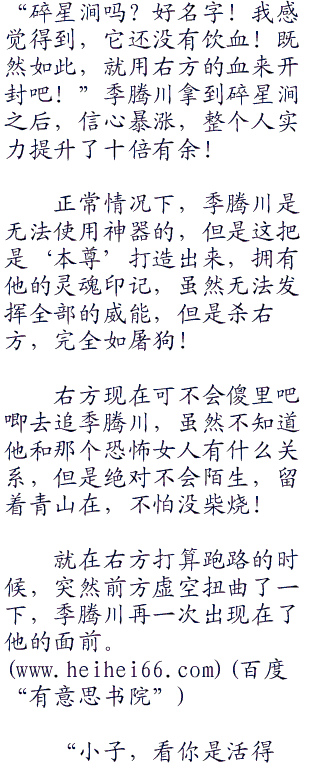 “碎星涧吗？好名字！我感
觉得到，它还没有饮血！既
然如此，就用右方的血来开
封吧！”季腾川拿到碎星涧
之后，信心暴涨，整个人实
力提升了十倍有余！
正常情况下，季腾川是
无法使用神器的，但是这把
是‘本尊’打造出来，拥有
他的灵魂印记，虽然无法发
挥全部的威能，但是杀右
方，完全如屠狗！
右方现在可不会傻里吧
唧去追季腾川，虽然不知道
他和那个恐怖女人有什么关
系，但是绝对不会陌生，留
着青山在，不怕没柴烧！
就在右方打算跑路的时
候，突然前方虚空扭曲了一
下，季腾川再一次出现在了
他的面前。
(www.heihei66.com)(百度
“有意思书院”)
“小子，看你是活得